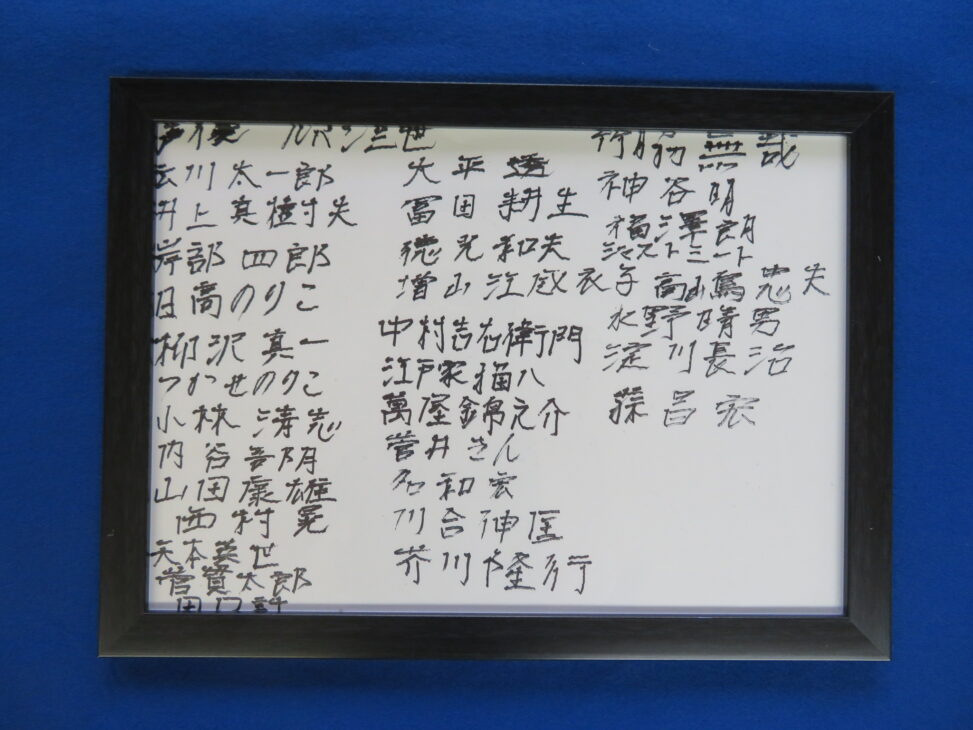 声優 ルパン三世
広川太一郎
井上真樹夫
岸部四郎
日高のりこ
柳沢真一
つかせのりこ
小林清志
内谷吾朗
山田康雄
西村晃
天本英世
菅貫太郎
田口計
大平透
富田耕生
徳光和夫
増山江威衣子
中村吉右衛門
江戸家猫八
萬屋錦之介
菅井きん
名和宏
川合伸旺
芥川隆行
竹脇無哉
神谷明
梅澤朗
ジャストミート
高山篤忠夫
水野晴男
淀川長治
蔡昌宏